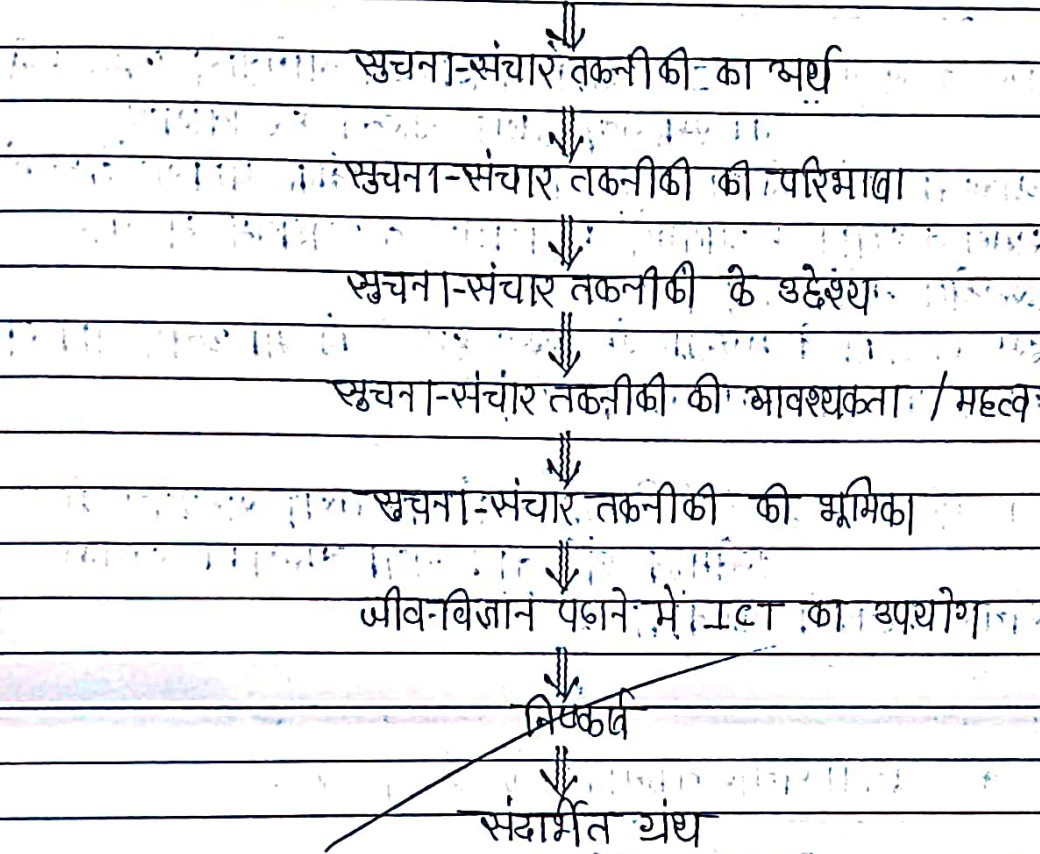 सुचना-संचार तकनीकी का अर्थ
सुचना-संचार तकनीकी की परिभाषा
सुचना-संचार तकनीकी के उद्देश्य
सुचना-संचार तकनीकी की आवश्यकता / महत्व
सुचना-संचार तकनीकी की भूमिका
जीव-विज्ञान पढाने में ICT का उपयोग
निष्कर्ष
संदार्भित ग्रंथ